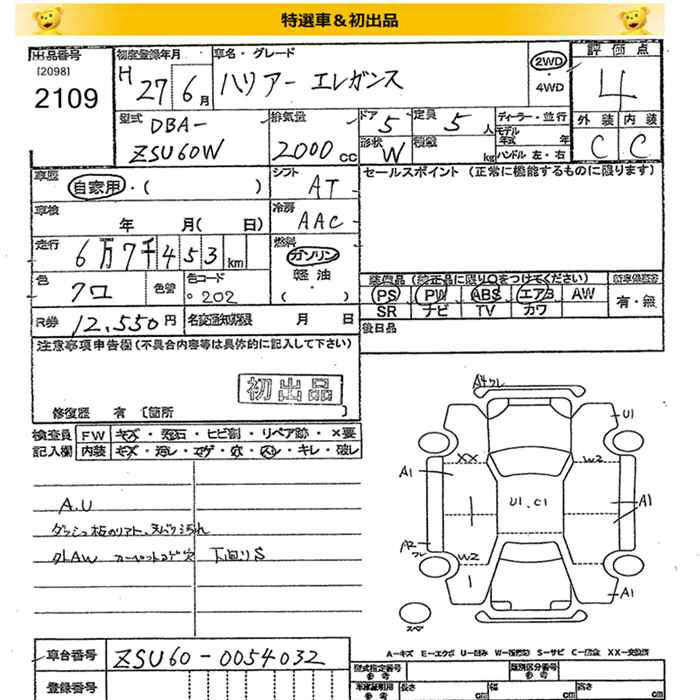 特選車＆初出品
出品番号
[2098]
2109
初度登録年月
H 27 6月
車名・グレード
ハリアー エレガンス
2WD
・4WD
評価点
4
外装 内装
C C
型式
DBA-
ZSU60W
排気量
2000 cc
ドア 5
形状 W
定員 5 人
積載 kg
ディーラー・並行
モデル年式 年
ハンドル 左・右
車歴
自家用・( )
シフト
AT
冷房
AAC
セールスポイント (正常に機能するものに限ります)
車検
年 月( 日)
走行
6万7千453 km
燃料
ガソリン
軽油
・( )
色
クロ
色替
色コード
202
装備品 (純正品に限り○をつけてください)
PS PW ABS エアB AW
SR ナビ TV カワ
有・無
R券 12,550円
名変通知期限 月 日
後日品
注意事項申告欄 (不具合内容等は具体的に記入して下さい)
初出品
修復歴 有 [箇所 ]
検査員 FW キズ・飛石・ヒビ割・リペア跡・×要
記入欄 内装 キズ・汚レ・コゲ・穴・スレ・キレ・破レ
A.U
下回りS
A4
U1
XX
W2
A1
U1.C1
A1
A2
W2
A1
スペア
A-キズ E-エクボ U-凹み W-補修跡 S-サビ C-腐食 XX-交換済
車台番号 ZSU60-0054032
登録番号
型式指定番号
参考
類別区分番号
参考
車庫証明用
参考
長さ cm
幅 cm
高さ cm